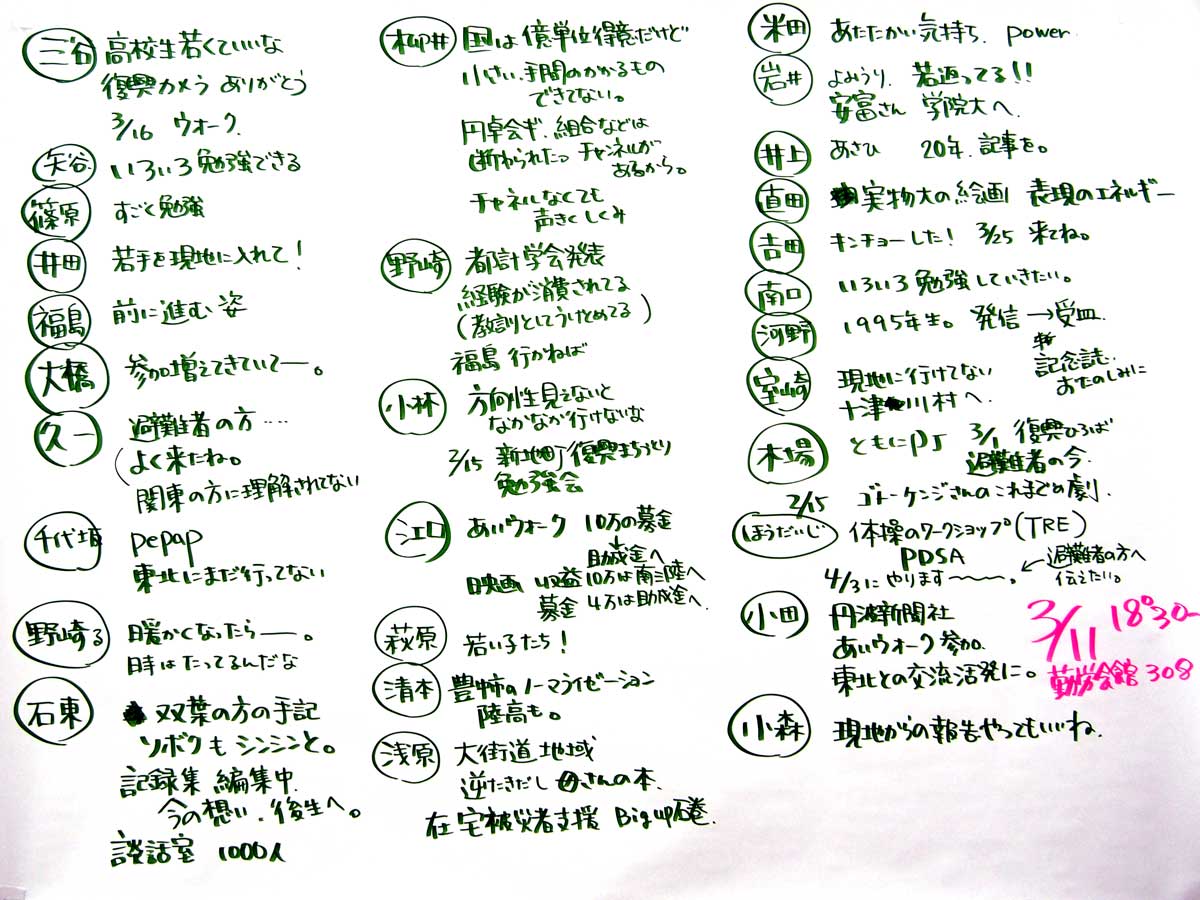 三谷 高校生若くていいな
復興カメラ ありがとう
3/16 ウォーク.
矢谷 いろいろ勉強できる
篠原 すごく勉強
井田 若手を現地に入れて!
福島 前に進む姿
大橋 参加増えてきていて〜。
久一 避難者の方‥‥
よく来たね。
関東の方に理解されてない
千代 pepap
東北にまだ行ってない
野崎る 暖かくなったら〜。
時はたってるんだな
石東 双葉の方の手記
ソボクもシンシンと。
記録集 編集中.
今の想い.後生へ。
談話室 1000人
柳井 国は億単位得意だけど
小さい.手間のかかるもの
できてない。
円卓会ギ.組合などは
断わられたっ チャンネルが
あるから。
チャネルなくても
声きくしくみ
野崎 都計学会発表
経験が消費されてる
(教訓としてうけとめてる)
福島 行かねば
小林 方向性見えないと
なかなか行けないな
2/15 新地町復興まちづくり
勉強会
江口 あいウォーク 10万の募金
↓
助成金へ
映画 収益 10万は南三陸へ
募金 4万は助成金へ.
萩原 若い子たち!
清本 豊姉のノーマライゼーション
陸高も。
浅原 大街道地域
逆たきだし 母さんの本.
在宅被災者支援 Big up石巻.
米田 あたたかい気持ち. power.
岩井 よみうり. 若返ってる!!
安富さん 学院大へ.
井上 あさひ 20年.記事を。
直田 実物大の絵画 表現のエネルギー
吉田 キンチョーした! 3/25 来てね。
南口 いろいろ勉強していきたい。
河野 1995年生。発信→受皿.
記念誌.
おたのしみに
室崎 現地に行けてない
十津川村へ.
木場 ともにPJ 3/1 復興ひろば
避難者の今.
2/15 ゴトーケンジさんのこれまでの劇.
ほうだいじ 体操のワークショップ(TRE)
PDSA
4/3にやります〜〜。← 避難者の方へ
伝えたい。
小田 丹波新聞社
あいウォーク参加.
東北との交流活発に。
3/11 18:30〜
勤労会館 308
小森 現地からの報告やってもいいね.